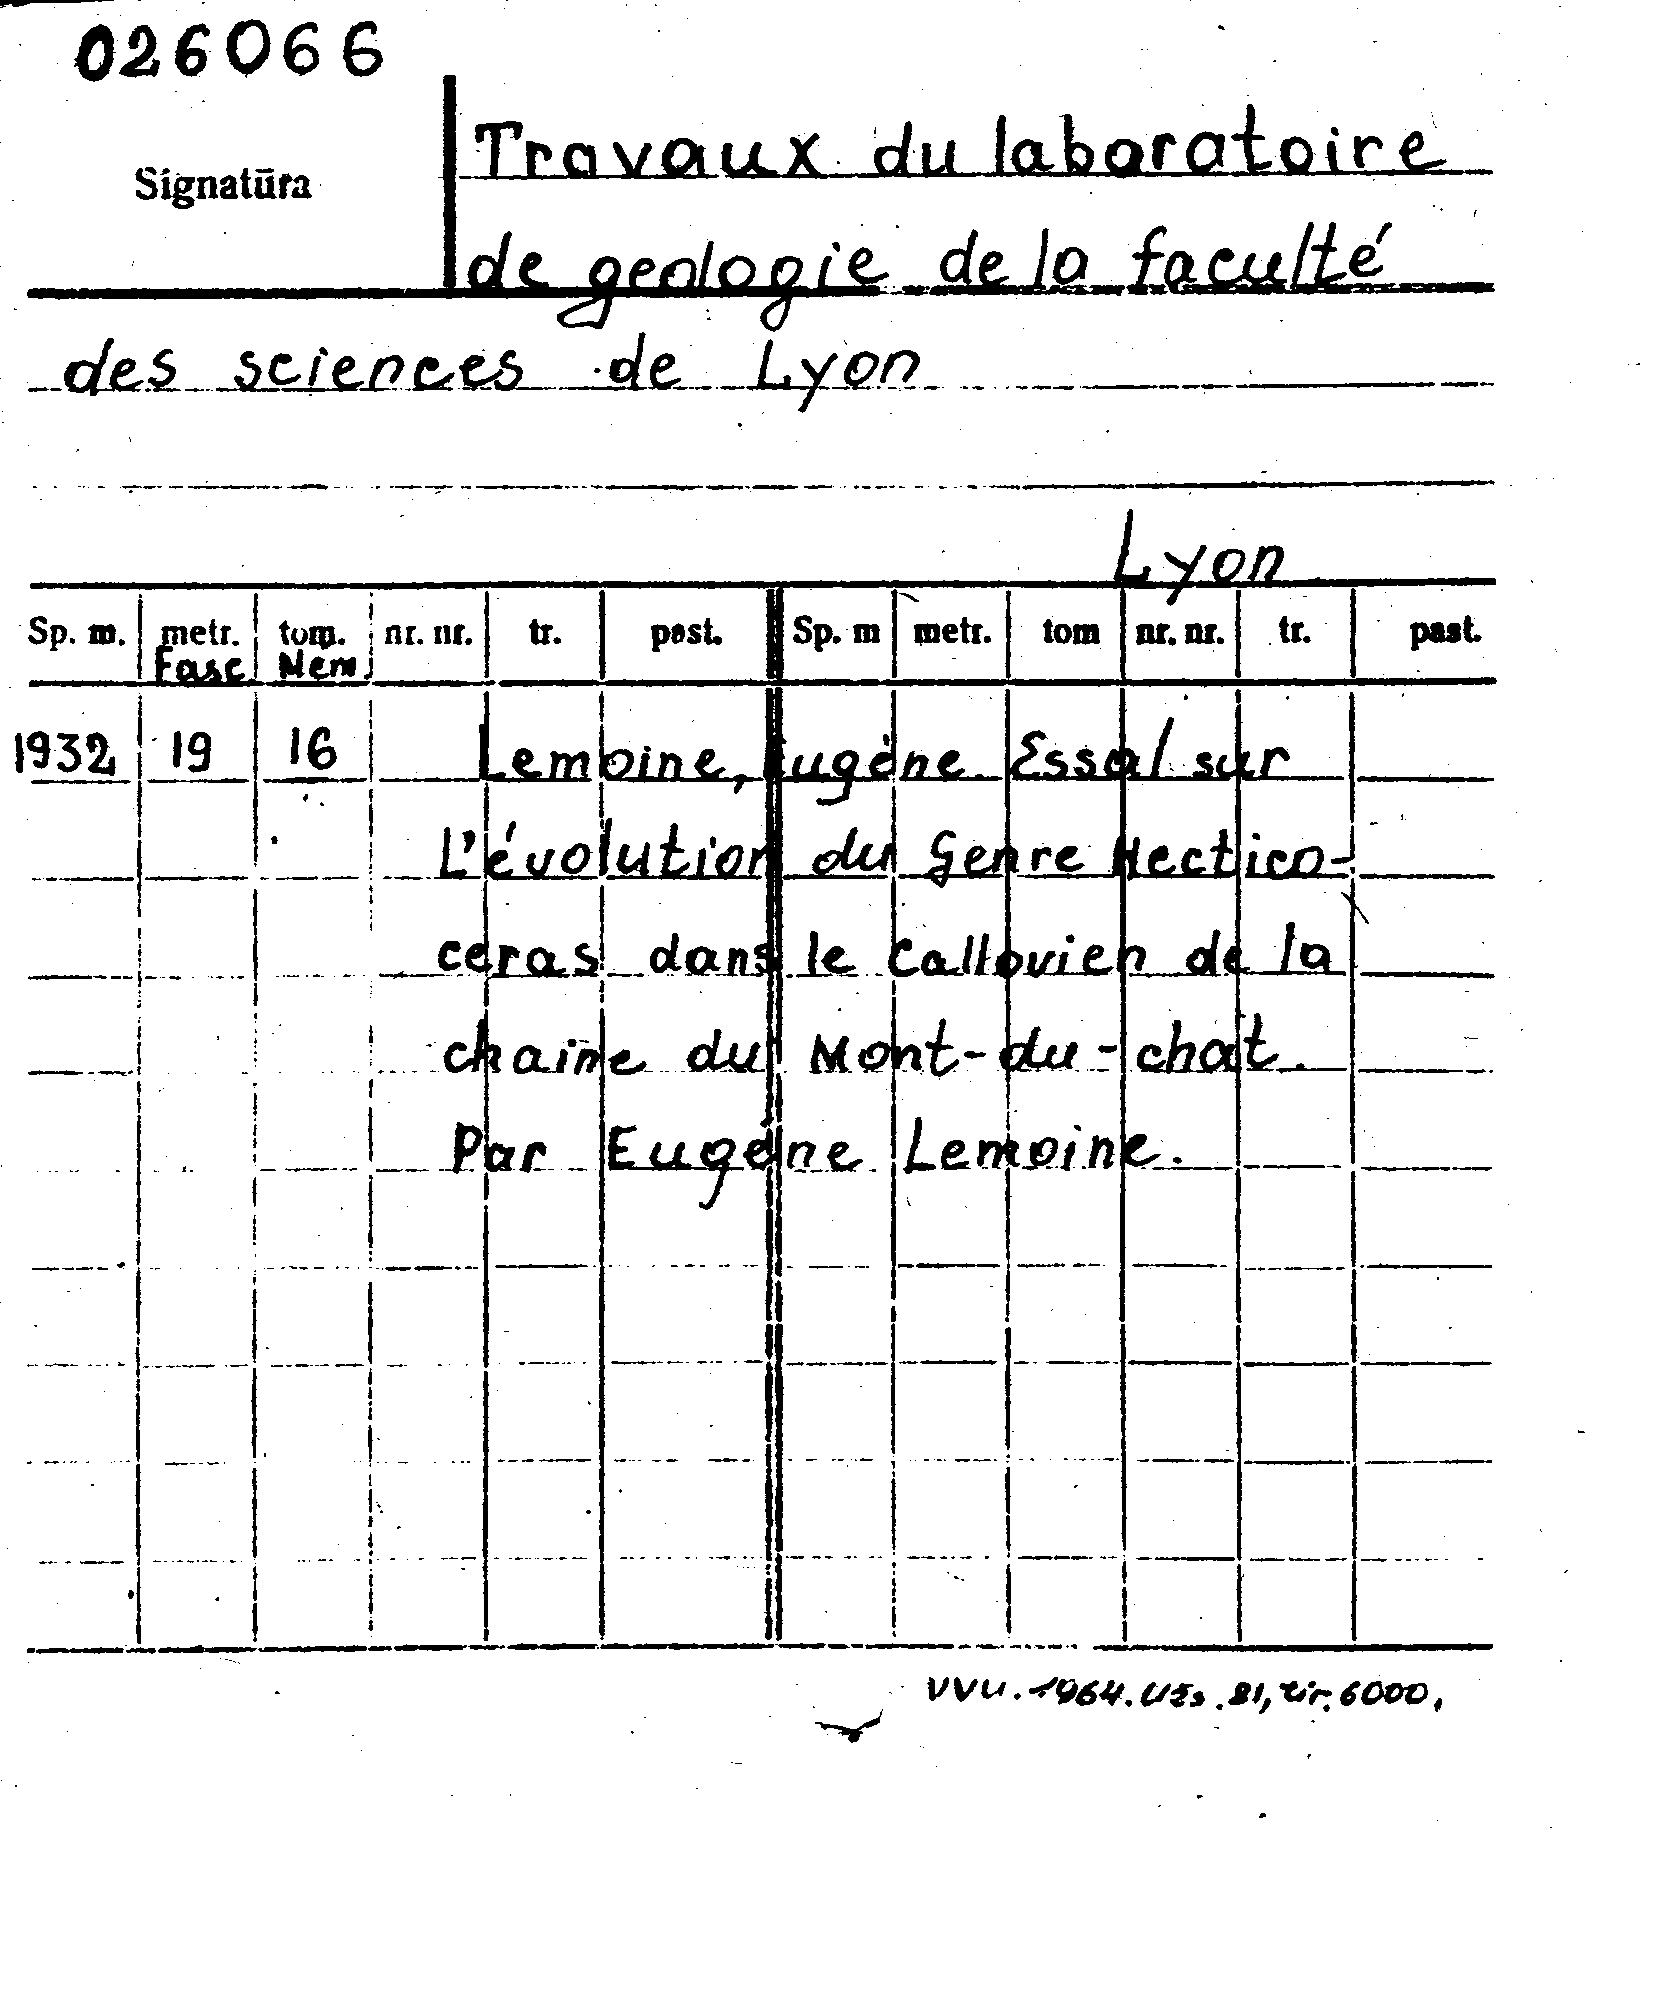 026066
Signatūra
Travaux du laboratoire
de geologie de la faculté
des sciences de Lyon
Lyon
Sp. m. metr. tom. nr. nr. tr. past. Sp. m metr. tom nr. nr. tr. past.
Fasc Mem.
1932 19 16 Lemoine, Eugène. Essai sur
L'évolution du Genre Hectico-
ceras dans le Callovien de la
chaine du Mont-du-chat.
Par Eugéne Lemoine.
VVU. 1964. Užs. 81, tir. 6000.